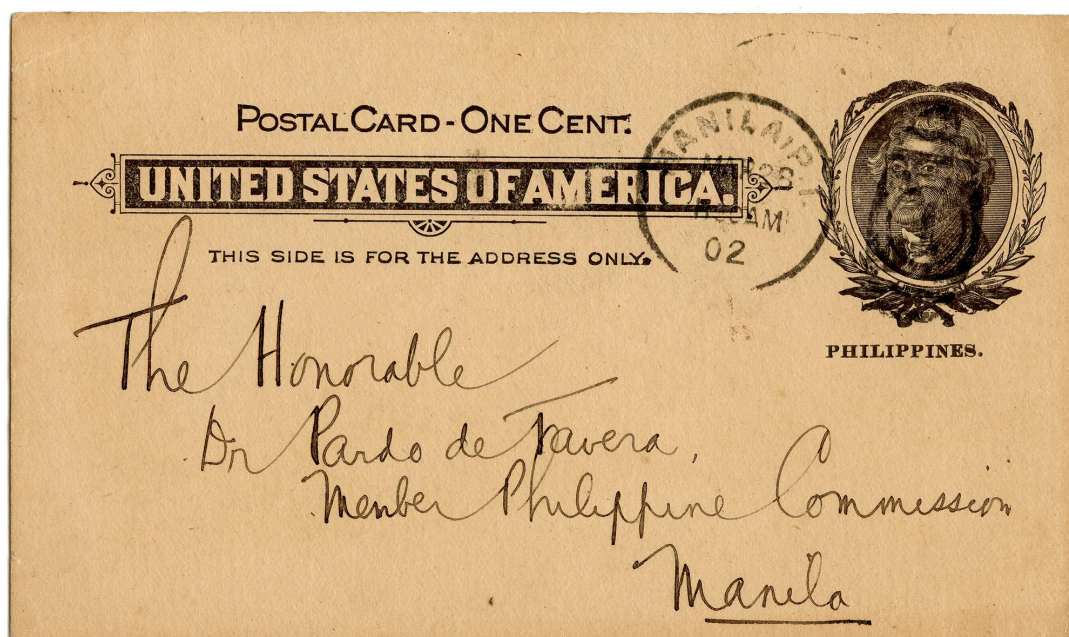 POSTAL CARD - ONE CENT.
UNITED STATES OF AMERICA.
THIS SIDE IS FOR THE ADDRESS ONLY.
MANILA, P.I.
MAR 28
AM
02
PHILIPPINES.
The Honorable
Dr Pardo de Tavera,
Member Philippine Commission
Manila